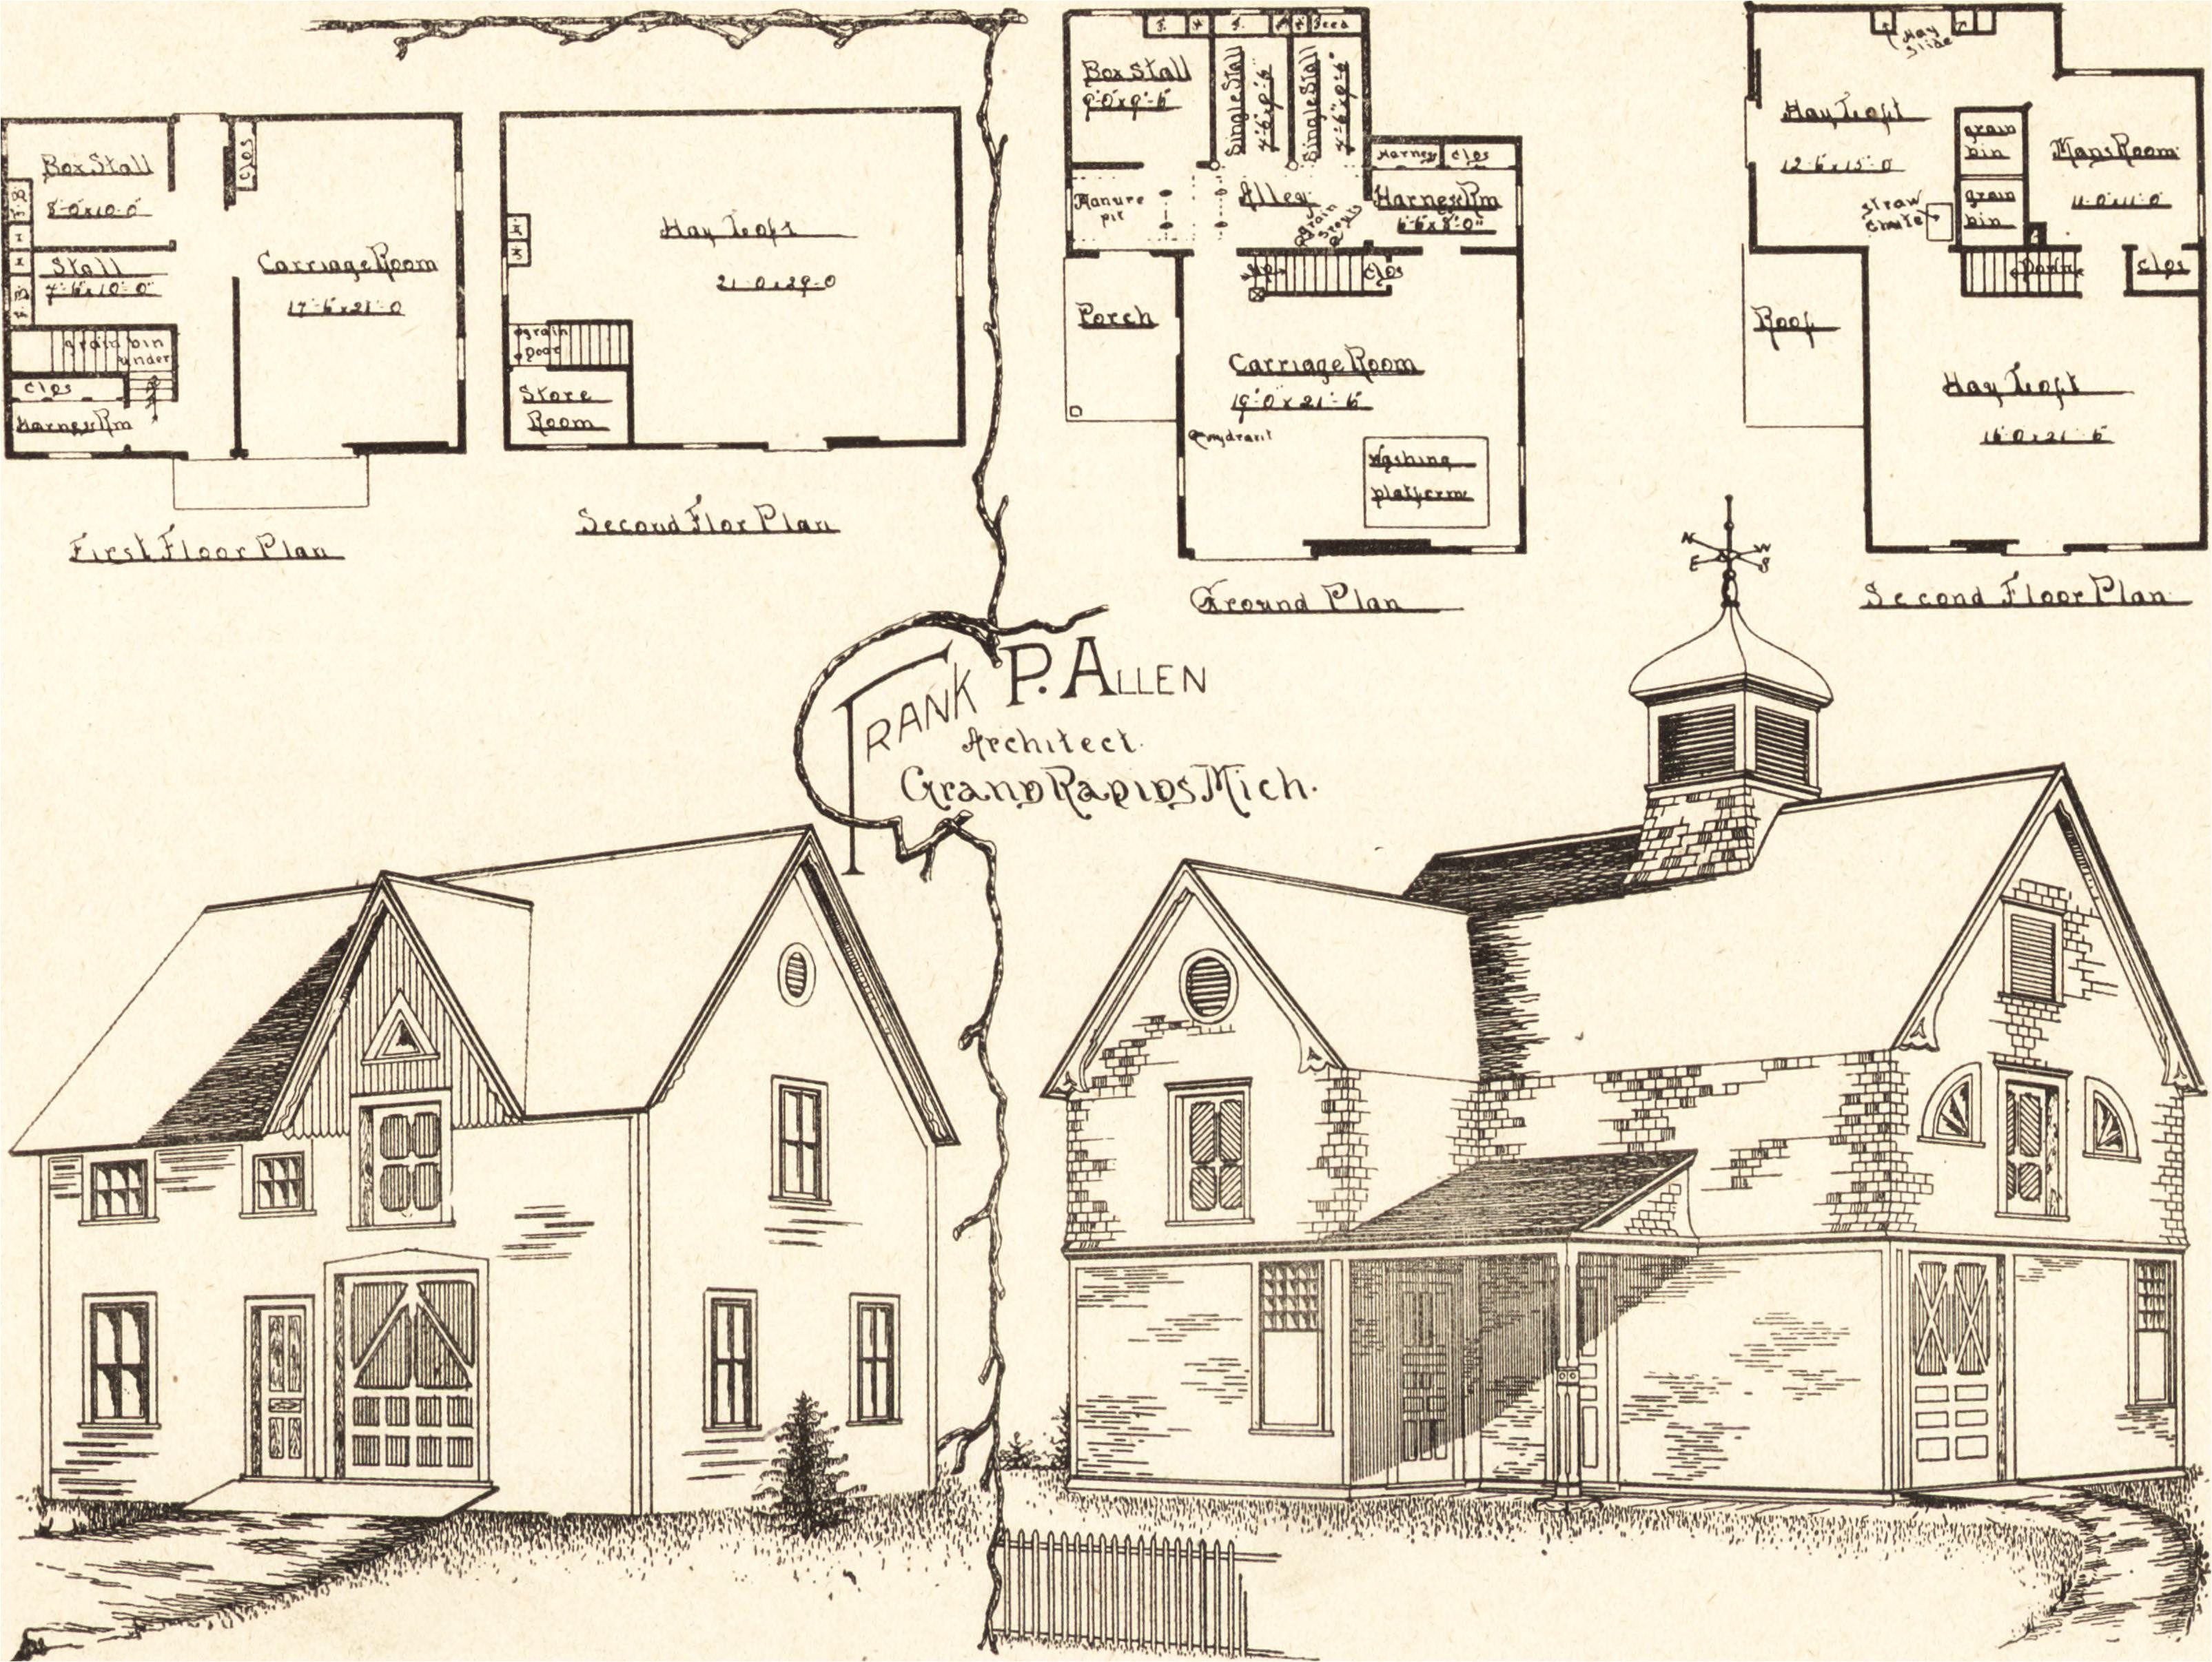 Box Stall
8'-0"x10'-0"
F.B.
H
H
F.B.
Stall
7'-6"x10'-0"
grain bin
under
Clos
Harness Rm
Clos
Carriage Room
17'-6"x21'-0
First Floor Plan
H
H
Hay Loft
21'-0x29'-0
grain
Door
Store
Room
Second Flor Plan
F.
H
F.
H
H
Feed
Box Stall
9'-0"x9'-6"
Single Stall
4'-6"x9'-6"
Single Stall
4'-6"x9'-6"
Harness
Clos
Manure
pit
Alley
grain
spouts
Harness Rm
6'-6"x8'-0"
Up
Clos
Porch
Carriage Room
19'-0"x21'-6"
Hydrant
Washing
platform
Ground Plan
Hay
Slide
Hay Loft
12'-6"x15'-0
grain
bin
grain
bin
Mans Room
11'-0"x11'-0"
Straw
Chute
Down
Clos
Roof
Hay Loft
16'-0x21'-6"
Second Floor Plan
N
W
E
S
FRANK P. ALLEN
Architect.
GRAND RAPIDS Mich.